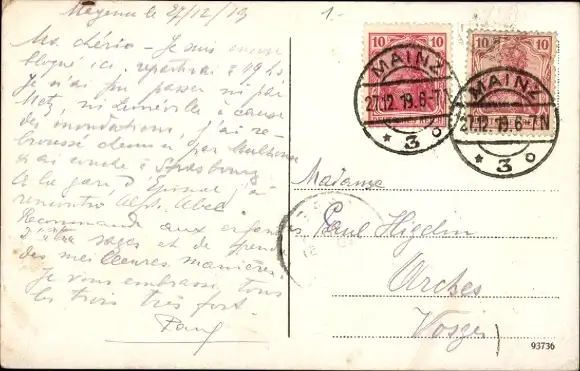 Mayence le 27/12/19
Ma chérie - Je suis encore
bloqué ici, repartirai à 19 hs.
Je n'ai pu passer ni par
Metz, ni Lunéville à cause
des inondations, j'ai re-
broussé chemin par Mulhouse
et ai couché à Strasbourg
A la gare d'Épinal j'ai
rencontré Alph. Abel
Recommande aux enfants
sages et de
des meilleures manières.
Je vous embrasse tous
les trois très fort.
Paul
1.-
10 10
10 10
MAINZ
27.12.19.6-7N
* 3 o
MAINZ
27.12.19.6-7N
* 3 o
Madame
Paul Higelin
Arches
Vosges
93736